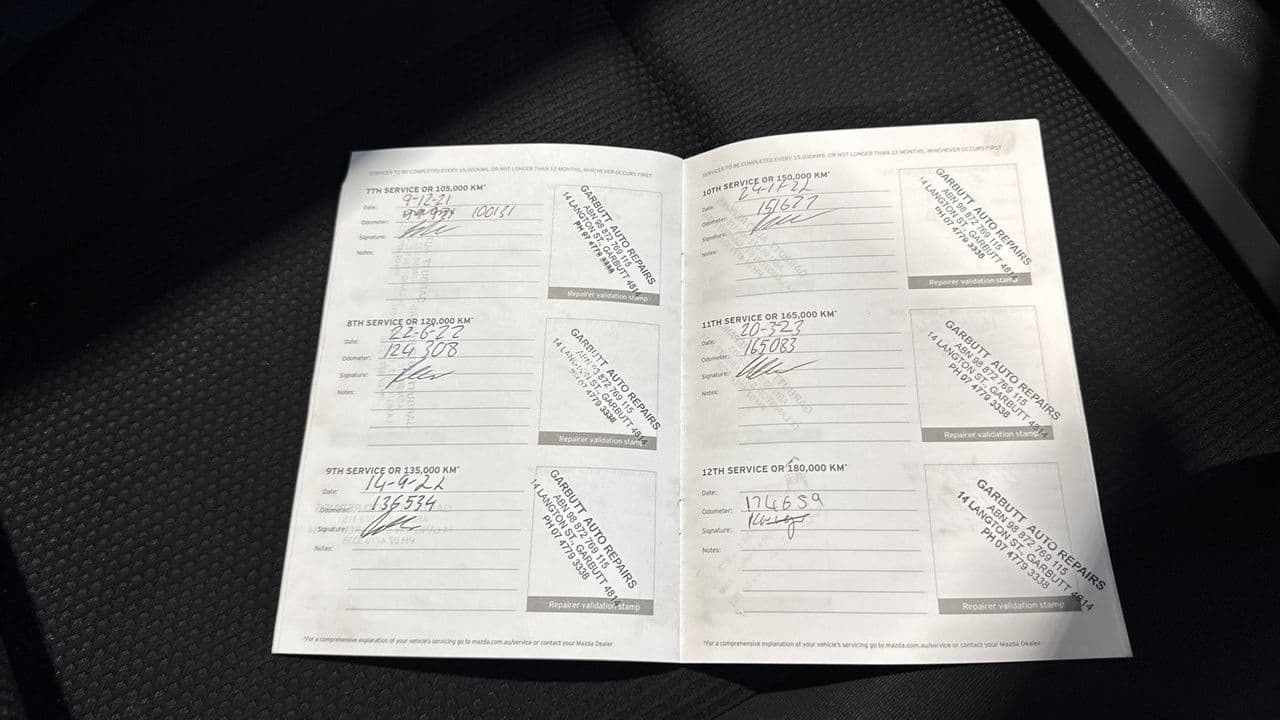 SERVICES TO BE COMPLETED EVERY 15,000KMS, OR NOT LONGER THAN 12 MONTHS, WHICHEVER OCCURS FIRST
7TH SERVICE OR 105,000 KM*
Date: 9-12-21
Odometer: 100131
Signature:
Notes:
GARBUTT AUTO REPAIRS
ABN 98 872 769 115
14 LANGTON ST, GARBUTT 4814
PH 07 4779 3338
Repairer validation stamp
8TH SERVICE OR 120,000 KM*
Date: 22-6-22
Odometer: 124308
Signature:
Notes:
GARBUTT AUTO REPAIRS
ABN 98 872 769 115
14 LANGTON ST, GARBUTT 4814
PH 07 4779 3338
Repairer validation stamp
9TH SERVICE OR 135,000 KM*
Date: 14-9-22
Odometer: 136534
Signature:
Notes:
GARBUTT AUTO REPAIRS
ABN 98 872 769 115
14 LANGTON ST, GARBUTT 4814
PH 07 4779 3338
Repairer validation stamp
*For a comprehensive explanation of your vehicle's servicing go to mazda.com.au/service or contact your Mazda Dealer
SERVICES TO BE COMPLETED EVERY 15,000KMS, OR NOT LONGER THAN 12 MONTHS, WHICHEVER OCCURS FIRST
10TH SERVICE OR 150,000 KM*
Date:
Odometer: 151627
Signature:
Notes:
GARBUTT AUTO REPAIRS
ABN 98 872 769 115
14 LANGTON ST, GARBUTT 4814
PH 07 4779 3338
Repairer validation stamp
11TH SERVICE OR 165,000 KM*
Date: 20-323
Odometer: 165083
Signature:
Notes:
GARBUTT AUTO REPAIRS
ABN 98 872 769 115
14 LANGTON ST, GARBUTT 4814
PH 07 4779 3338
Repairer validation stamp
12TH SERVICE OR 180,000 KM*
Date:
Odometer: 174659
Signature:
Notes:
GARBUTT AUTO REPAIRS
ABN 98 872 769 115
14 LANGTON ST, GARBUTT 4814
PH 07 4779 3338
Repairer validation stamp
*For a comprehensive explanation of your vehicle's servicing go to mazda.com.au/service or contact your Mazda Dealer